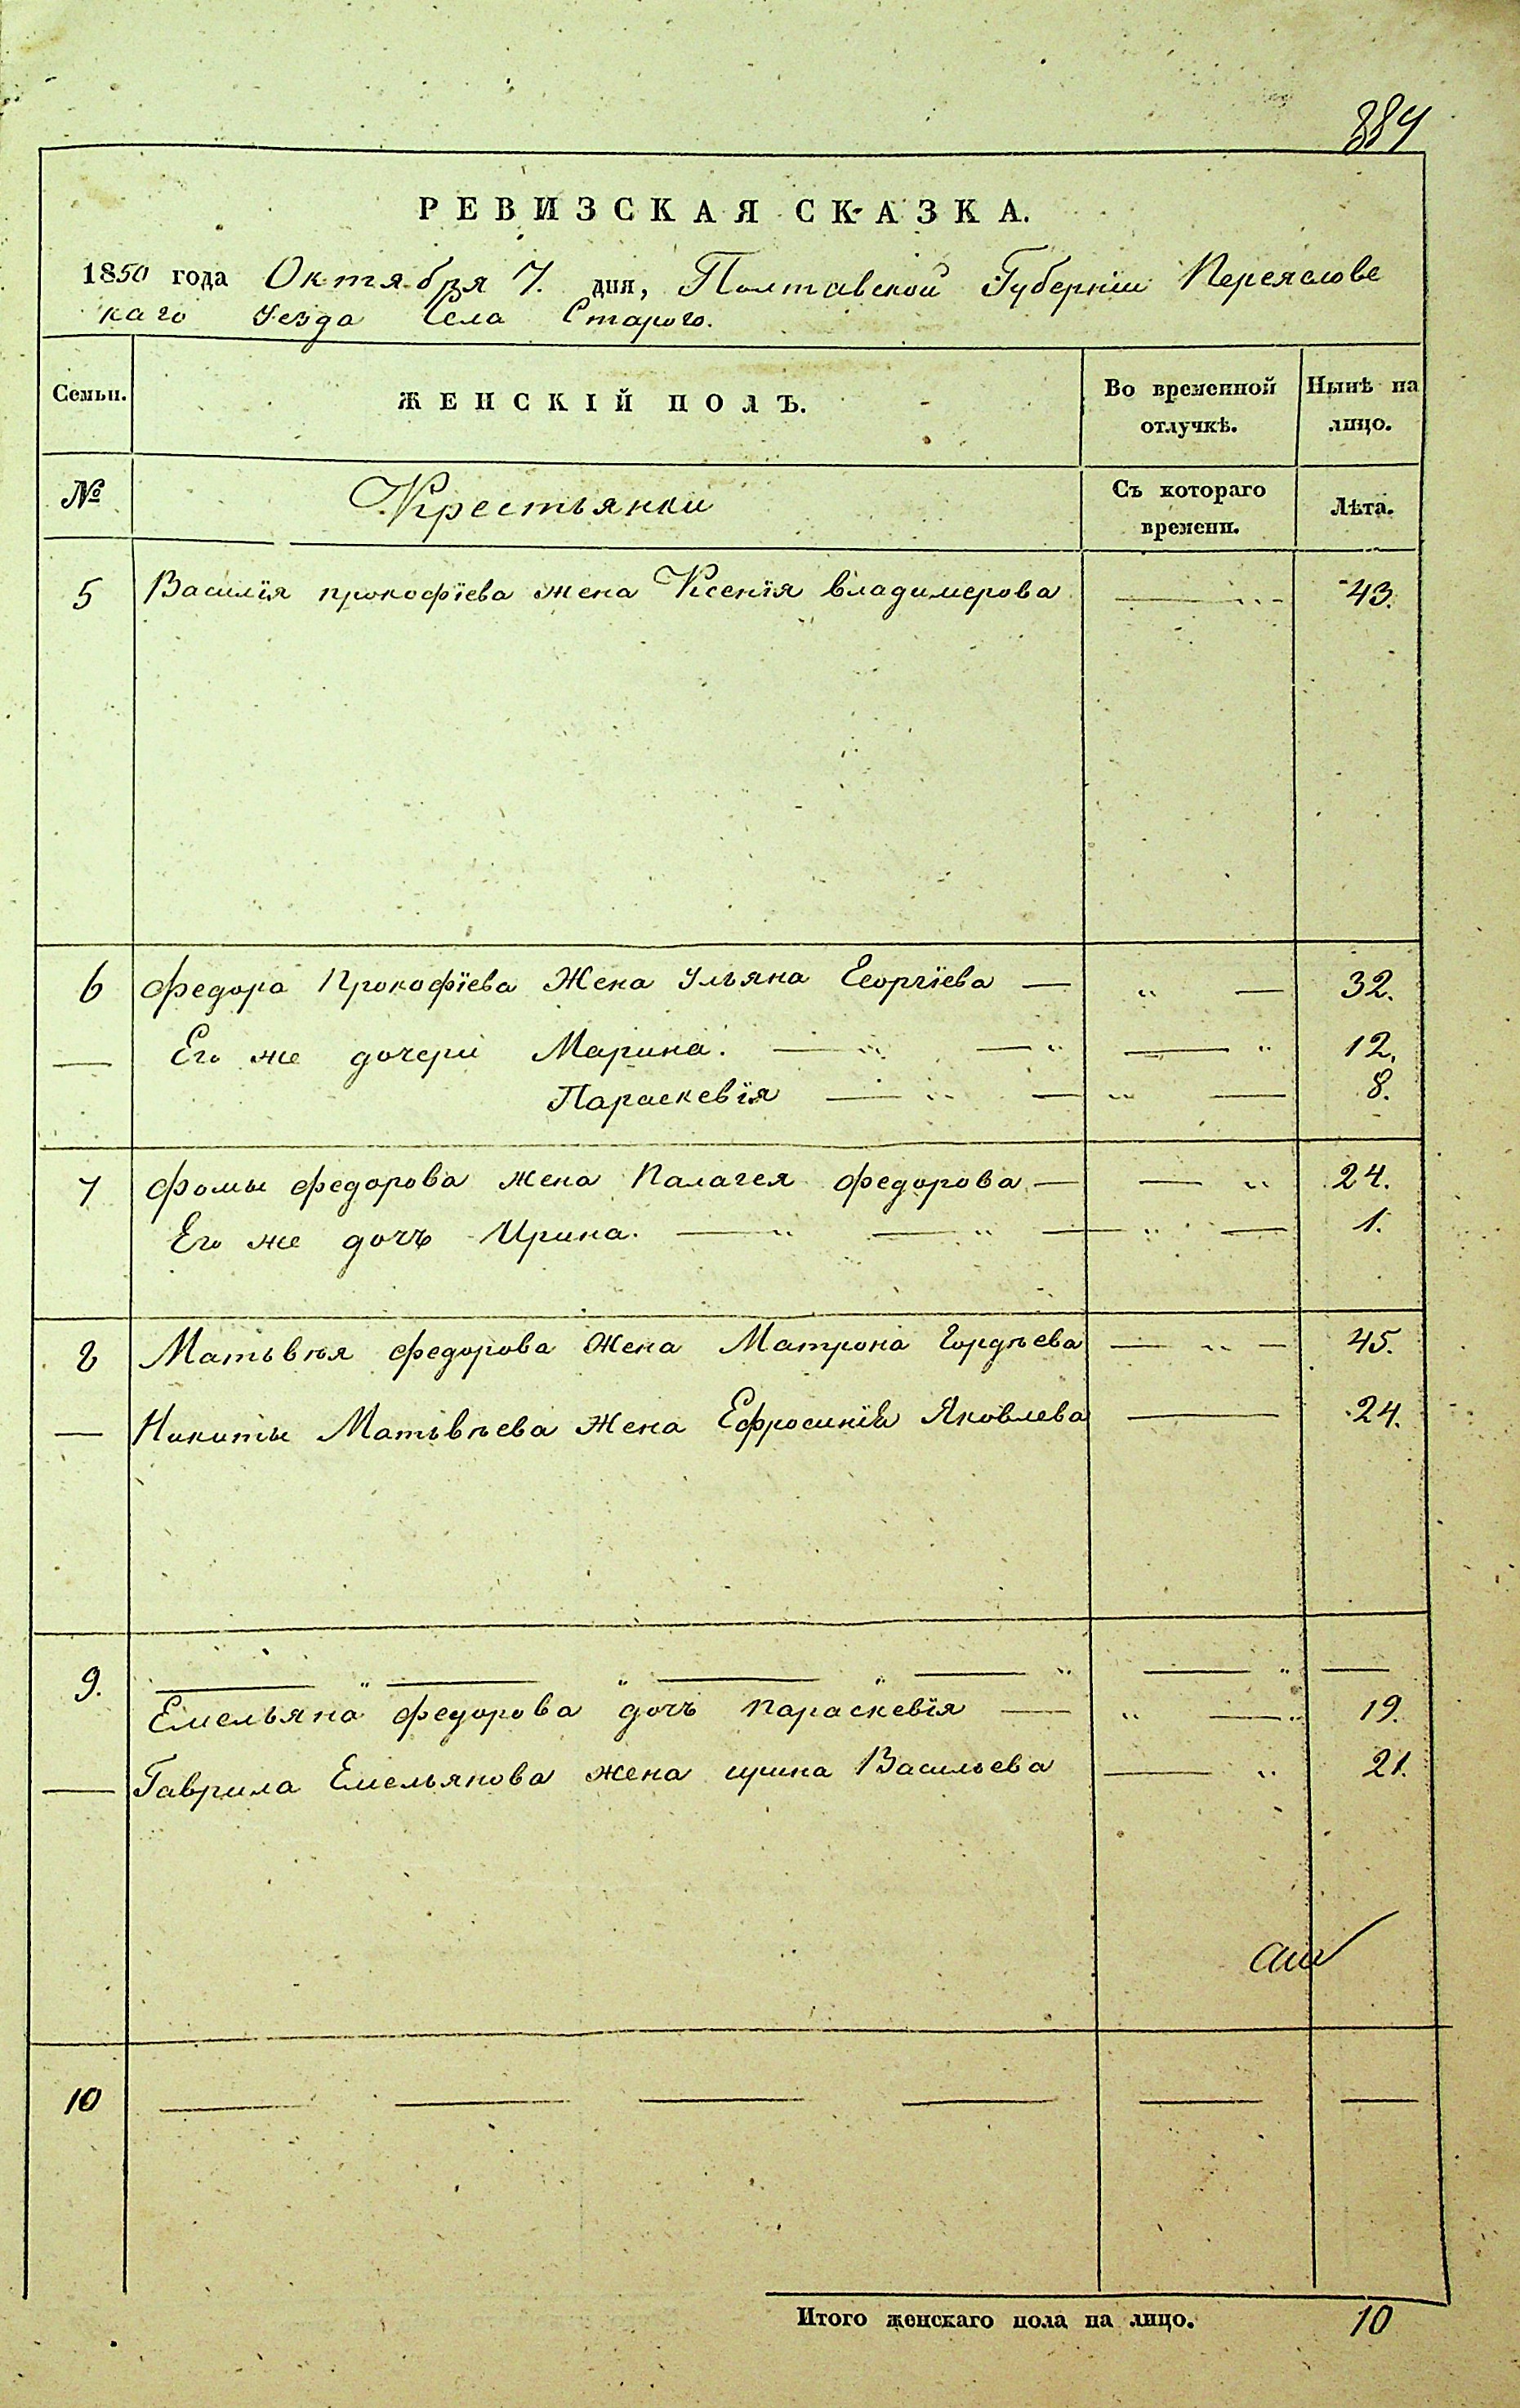 884
РЕВИЗСКАЯ СКАЗКА.
1850 года Октября 7. дня, Полтавской Губерніи Переяславс
каго Уезда Села Старого.
Семьи. ЖЕНСКІЙ ПОЛЪ. Во временной отлучкѣ. Нынѣ на лицо.
№ Крестьянки Съ котораго времени. Лѣта.
5 Василія прокофіева жена Ксенія владимерова 43.
6 Федора Прокофіева Жена Ульяна Георгіева 32.
Его же дочери Марина. 12.
Параскевія 8.
7 Фомы Федорова жена Палагея Федорова 24.
Его же дочъ Ирина. 1.
8 Матьвѣя Федорова Жена Матрона Гордѣева 45.
Никиты Матьвѣева Жена Ефросинія Яковлева 24.
9.
Емельяна Федорова дочъ параскевія 19.
Гаврила Емельянова жена ирина Васильева 21.
10
Итого женскаго пола на лицо. 10